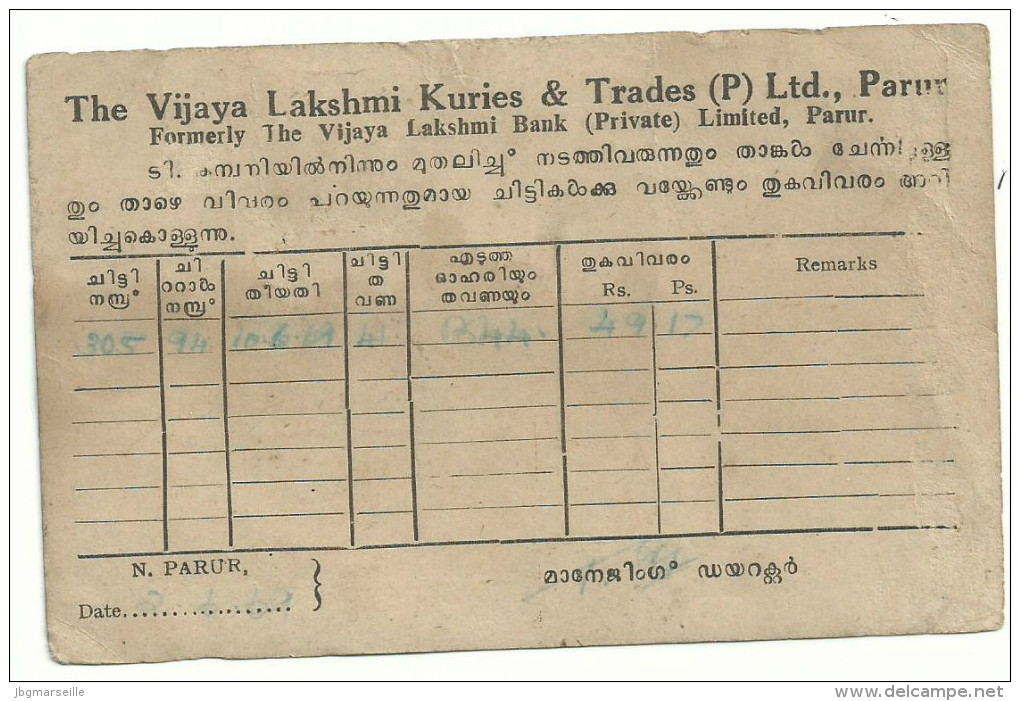 The Vijaya Lakshmi Kuries & Trades (P) Ltd., Parur
Formerly The Vijaya Lakshmi Bank (Private) Limited, Parur.
ടി. കമ്പനിയിൽനിന്നും മുതലിച്ച് നടത്തിവരുന്നതും താങ്കൾ
തും താഴെ വിവരം പറയുന്നതുമായ ചിട്ടികൾക്കു വയ്ക്കേണ്ടും തുകവിവരം അറി
യിച്ചുകൊള്ളുന്നു.
ചിട്ടി നമ്പ്ര് ചിറ്റാൾ നമ്പ്ര് ചിട്ടി തീയതി ചിട്ടി തവണ എടുത്ത ഓഹരിയും തവണയും തുകവിവരം Rs. Ps. Remarks
305 94 10.6.69 4 49 17
N. PARUR,
Date..................
മാനേജിംഗ് ഡയറക്ടർ
jbgmarseille
www.delcampe.net